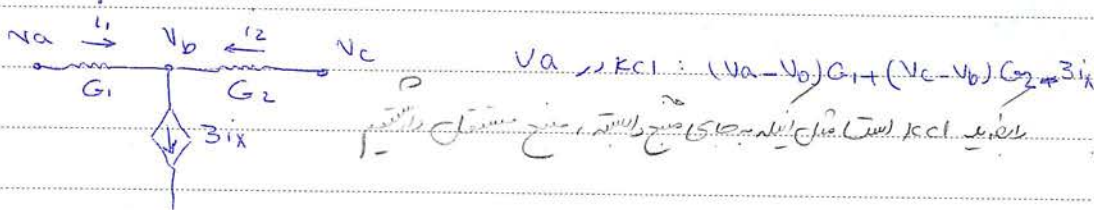 i1 i2
Va → Vb ← Vc
G1 G2
3ix
Va در KCl : (Va-Vb)G1+(Vc-Vb)G2=3ix
KCl است مثل اینکه به جای منبع وابسته، منبع مستقل داشتیم